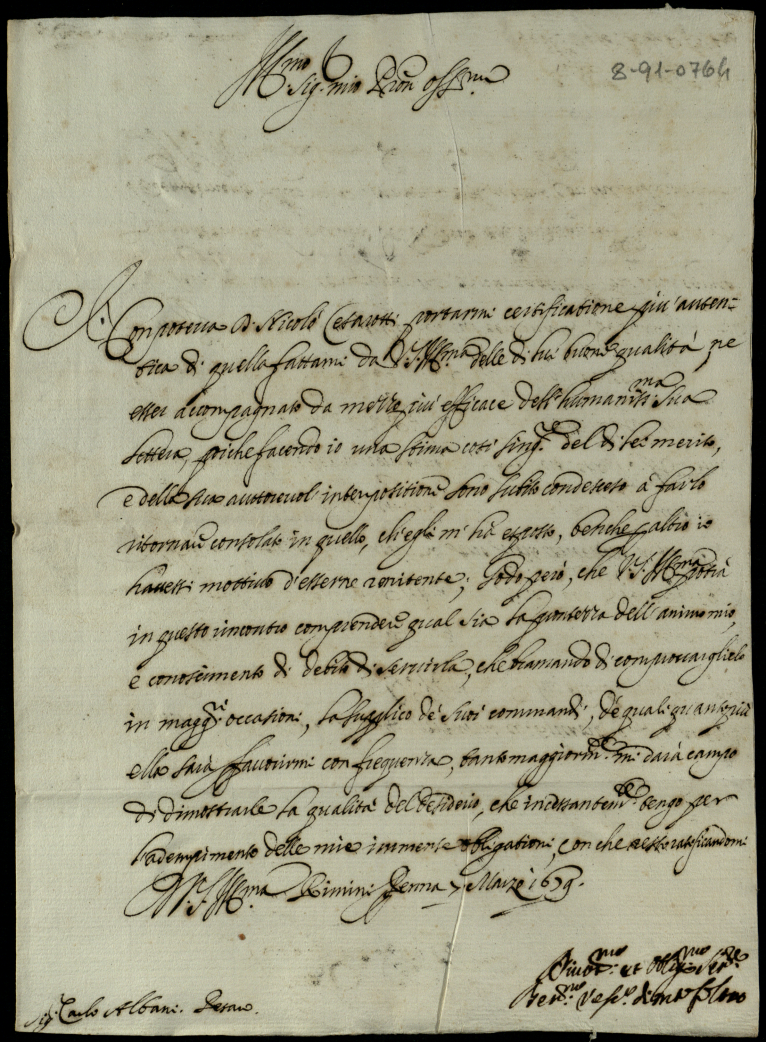 Ill.mo
Sig. mio Pron oss.mo
8-91-0764
Non poteva D. Nicolò Cesarotti portarmi certificatione più auten=
tica di quella fattami da V.S. Ill.ma delle di lui buone qualità, ne
esser accompagnato da mezzo più efficace dell'humaniss.ma Sua
lettera, poiche facendo io una stima così sing.re del di lei merito,
e della sua autorevol' interpositione sono subito condesceso à farlo
ritornare consolato in quello, ch'egli m'hà esposto, benche p altro io
havessi mottivo d'esserne renitente; Godo però, che V.S. Ill.ma potrà
in questo incontro comprendere qual sia la prontezza dell'animo mio,
e conoscimento di debito di servirla, che bramando di comprovarglielo
in magg.ri occasioni, la supplico de' suoi commandi, de quali quanto più
ella sarà p favorirmi con frequenza, tanto maggiorm.te mi darà campo
di dimostrarle la qualità del desiderio, che incessantem.te tengo per
l'adempimento delle mie immense obligationi, con che resto ratificandomi
D. V.S. Ill.ma Rimini Penna 7 Marzo 1659.
Divot.mo et oblig.mo Ser.re
Sig. Carlo Albani. Pesaro.
Ber.no Vesc.o di Mte feltro